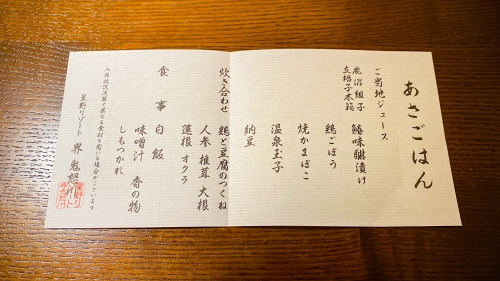 あさごはん
ご当地ジュース
鹿沼組子
立格子木箱
鰆味醂漬け
鶏ごぼう
焼かまぼこ
温泉玉子
納豆
炊き合わせ 鶏と豆腐のつくね
人参 椎茸 大根
蓮根 オクラ
食事 白飯
味噌汁 香の物
しもつかれ
入荷状況次第で異なる食材を用いる場合がございます
星野リゾート 界 鬼怒川